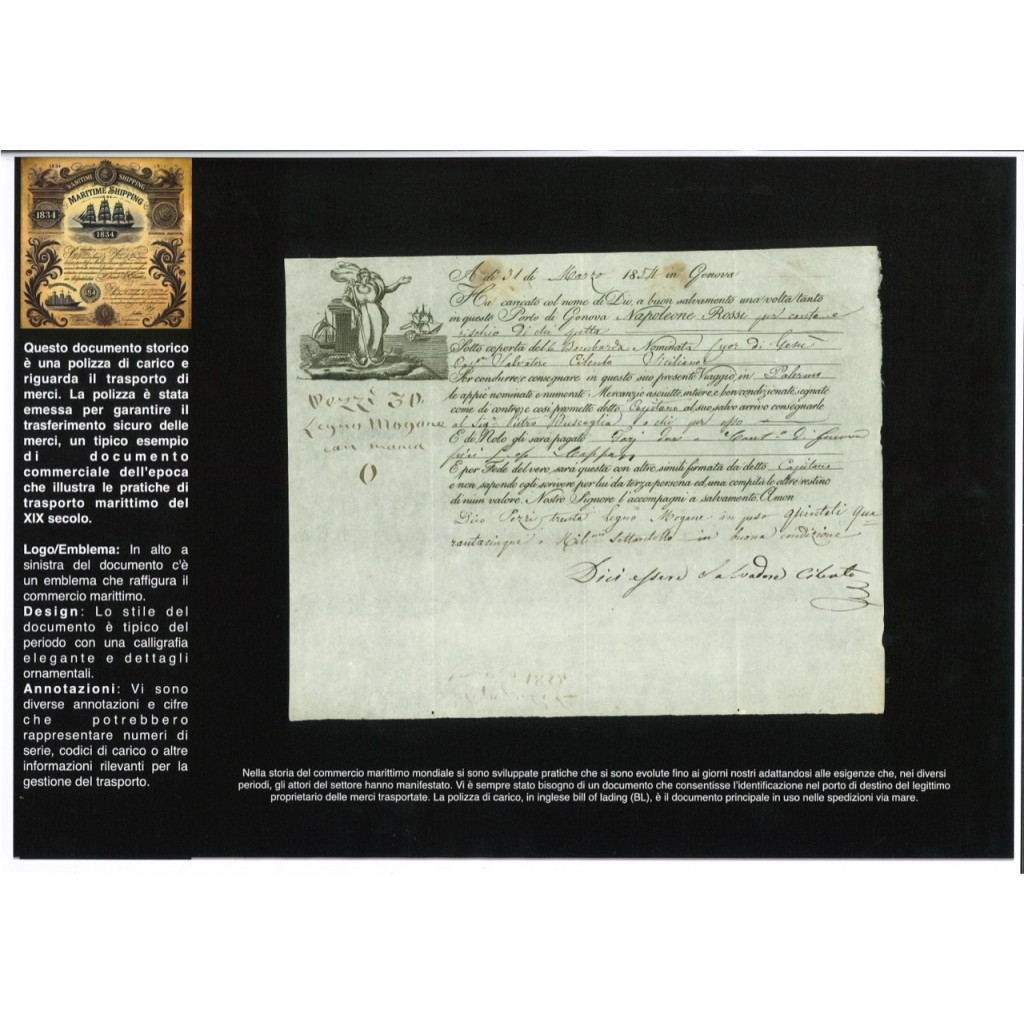 1834
MARITIME SHIPPING
MARITIME SHIPPING
1834
1834
Questo documento storico
è una polizza di carico e
riguarda il trasporto di
merci. La polizza è stata
emessa per garantire il
trasferimento sicuro delle
merci, un tipico esempio
di documento
commerciale dell'epoca
che illustra le pratiche di
trasporto marittimo del
XIX secolo.
Logo/Emblema: In alto a
sinistra del documento c'è
un emblema che raffigura il
commercio marittimo.
Design: Lo stile del
documento è tipico del
periodo con una calligrafia
elegante e dettagli
ornamentali.
Annotazioni: Vi sono
diverse annotazioni e cifre
che potrebbero
rappresentare numeri di
serie, codici di carico o altre
informazioni rilevanti per la
gestione del trasporto.
A dì 31 di Marzo 1834 in Genova
Ha caricato col nome di Dio, a buon salvamento una volta tanto
in questo Porto di Genova Napoleone Rossi per conto e
rischio di chi spetta
Sotto coperta del Bombarda Nominata
Salvatore Cilento Siciliano
Per condurre, e consegnare in questo suo presente Viaggio in Palermo
le appiè nominate e numerate Mercanzie asciutte, intere, e ben condizionate, segnate
come di contro, e così promette detto Capitano al suo salvo arrivo consegnarle
al Sig. Pietro o chi per esso
E di Nolo gli sarà pagato
E per Fede del vero, sarà questa con altre simili firmata da detto Capitano
e non sapendo egli scrivere per lui da terza persona ed una compita le altre restino
di niun valore. Nostro Signore l'accompagni a salvamento. Amen
Pezzi 30
Legno Mogano
con marca
O
Dico Pezzi trenta Legno Mogano in peso quintali qua=
rantacinque e settantotto in buona condizione
Dici essere Salvadore Cilento
Nella storia del commercio marittimo mondiale si sono sviluppate pratiche che si sono evolute fino ai giorni nostri adattandosi alle esigenze che, nei diversi
periodi, gli attori del settore hanno manifestato. Vi è sempre stato bisogno di un documento che consentisse l'identificazione nel porto di destino del legittimo
proprietario delle merci trasportate. La polizza di carico, in inglese bill of lading (BL), è il documento principale in uso nelle spedizioni via mare.